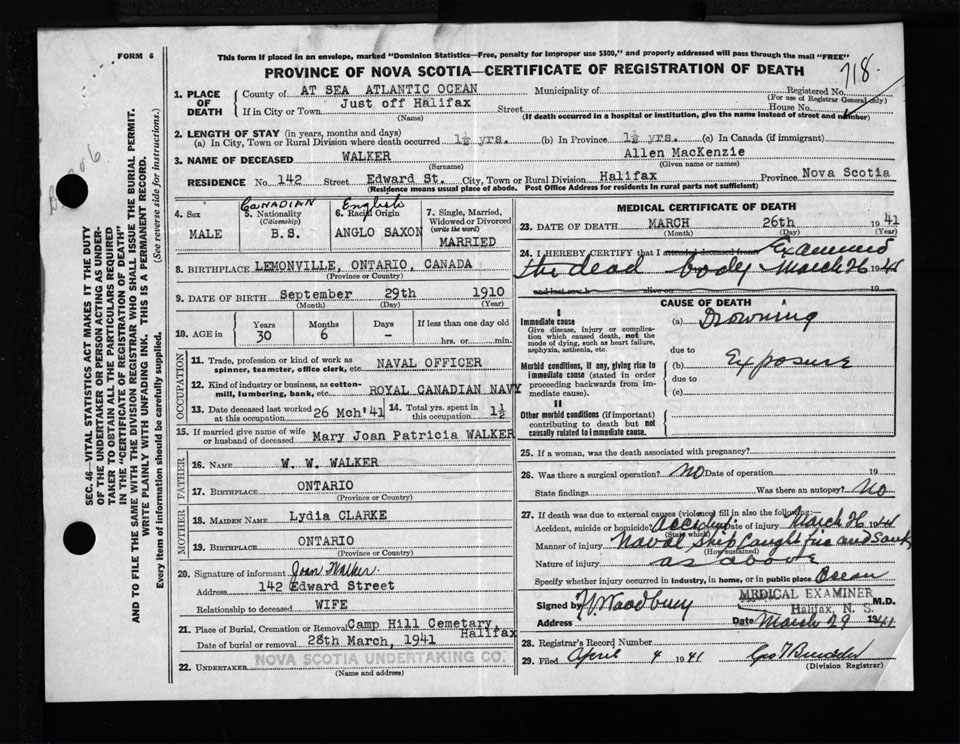 FORM 6
This form if placed in an envelope, marked "Dominion Statistics—Free, penalty for improper use $300," and properly addressed will pass through the mail "FREE"
PROVINCE OF NOVA SCOTIA—CERTIFICATE OF REGISTRATION OF DEATH
718.
1. PLACE OF DEATH
County of AT SEA ATLANTIC OCEAN Municipality of Registered No.
(For use of Registrar General only)
If in City or Town Just off Halifax Street House No.
(Name) (If death occurred in a hospital or institution, give the name instead of street and number)
2. LENGTH OF STAY (in years, months and days)
(a) In City, Town or Rural Division where death occurred 1½ yrs. (b) In Province 1½ yrs. (c) In Canada (if immigrant)
3. NAME OF DECEASED WALKER Allen MacKenzie
(Surname) (Given name or names)
RESIDENCE No. 142 Street Edward St. City, Town or Rural Division Halifax Province Nova Scotia
(Residence means usual place of abode. Post Office Address for residents in rural parts not sufficient)
4. Sex
MALE
CANADIAN
5. Nationality
(Citizenship)
B.S.
English
6. Racial Origin
ANGLO SAXON
7. Single, Married, Widowed or Divorced
(write the word)
MARRIED
8. BIRTHPLACE LEMONVILLE, ONTARIO, CANADA
(Province or Country)
9. DATE OF BIRTH September 29th 1910
(Month) (Day) (Year)
10. AGE in
Years Months Days If less than one day old
30 6 – hrs. or min.
OCCUPATION
11. Trade, profession or kind of work as
spinner, teamster, office clerk, etc. NAVAL OFFICER
12. Kind of industry or business, as cotton-
mill, lumbering, bank, etc. ROYAL CANADIAN NAVY
13. Date deceased last worked at this occupation 26 Mch '41
14. Total yrs. spent in this occupation 1½
15. If married give name of wife
or husband of deceased Mary Joan Patricia WALKER
FATHER
16. NAME W. W. WALKER
17. BIRTHPLACE ONTARIO
(Province or Country)
MOTHER
18. MAIDEN NAME Lydia CLARKE
19. BIRTHPLACE ONTARIO
(Province or Country)
20. Signature of informant Joan Walker.
Address 142 Edward Street
Relationship to deceased WIFE
21. Place of Burial, Cremation or Removal Camp Hill Cemetary, Halifax
Date of burial or removal 28th March, 1941
22. UNDERTAKER NOVA SCOTIA UNDERTAKING CO.
(Name and Address)
MEDICAL CERTIFICATE OF DEATH
23. DATE OF DEATH MARCH 26th 1941
(Month) (Day) (Year)
24. I HEREBY CERTIFY that I attended deceased from Examined
the dead body March 26 1941
and last saw h alive on 19
CAUSE OF DEATH
I
Immediate cause
Give disease, injury or complica-
tion which caused death, not the
mode of dying, such as heart failure,
asphyxia, asthenia, etc.
(a) Drowning
due to
Morbid conditions, if any, giving rise to
immediate cause (stated in order
proceeding backwards from im-
mediate cause).
(b) Exposure
due to
(c)
II
Other morbid conditions (if important)
contributing to death but not
causally related to immediate cause.
25. If a woman, was the death associated with pregnancy?
26. Was there a surgical operation? NO Date of operation 19
State findings Was there an autopsy? NO
27. If death was due to external causes (violence) fill in also the following:—
Accident, suicide or homicide? Accident Date of injury March 26 1941
(State which)
Manner of injury Naval Ship Caught Fire and Sank
(How sustained)
Nature of injury as above
Specify whether injury occurred in industry, in home, or in public place Ocean
MEDICAL EXAMINER
Signed by Woodbury M.D.
Halifax, N. S.
Address Date March 29 1941
28. Registrar's Record Number
29. Filed April 4 1941
(Division Registrar)
SEC. 46—VITAL STATISTICS ACT MAKES IT THE DUTY
OF THE UNDERTAKER OR PERSON ACTING AS UNDER-
TAKER TO OBTAIN ALL THE PARTICULARS REQUIRED
IN THE "CERTIFICATE OF REGISTRATION OF DEATH"
AND TO FILE THE SAME WITH THE DIVISION REGISTRAR WHO SHALL ISSUE THE BURIAL PERMIT.
WRITE PLAINLY WITH UNFADING INK. THIS IS A PERMANENT RECORD.
Every item of information should be carefully supplied. (See reverse side for instructions.)